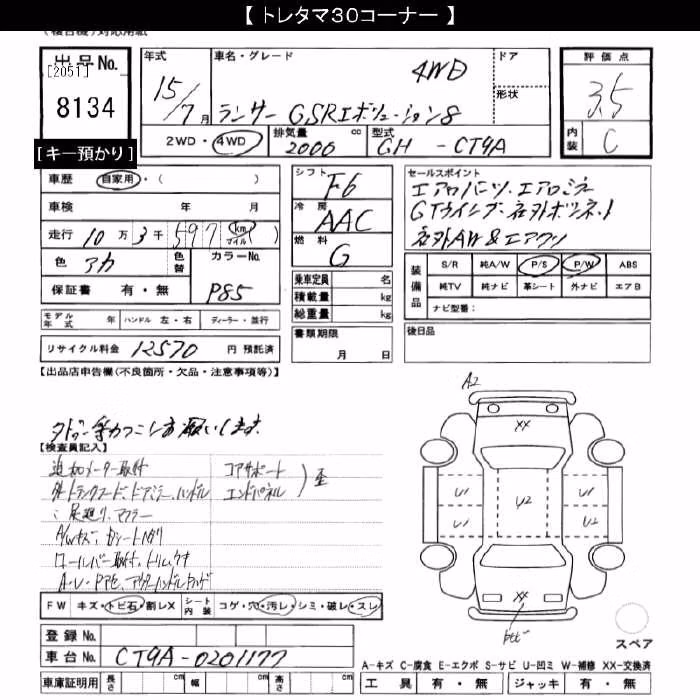 【 トレタマ30コーナー 】
(複合機)対応用紙
出品No.
[2051]
8134
[キー預かり]
年式
15/7月
車名・グレード
4WD
ランサー GSRエボリューション8
ドア
形状
2WD・4WD
排気量 2000 cc
型式 GH - CT9A
評価点
3.5
内装 C
車歴 自家用・( )
車検 年 月
走行 10万3千597 km マイル )
色 アカ
色替
カラーNo. P85
保証書 有・無
シフト F6
冷房 AAC
燃料 G
乗車定員 名
積載量 kg
総重量 kg
セールスポイント
エアロパーツ、エアロミラー
GTウイング、社外ボンネット
社外AW&エアクリ
装備品
S/R 純A/W P/S P/W ABS
純TV 純ナビ 革シート 外ナビ エアB
ナビ型番:
モデル年式 年 ハンドル 左・右 ディーラー・並行
リサイクル料金 12570 円 預託済
書類期限
月 日
後日品
【出品店申告欄(不良箇所・欠品・注意事項等)】
【検査員記入】
追加メーター取付
コアサポート
エンドパネル
歪
外 トランクフード、ドアミラー、ハンドル
足廻り、マフラー
A/Wキズ、
ロールバー取付、トリム
A2
XX
U1
U1
U2
U1
U2
XX
FW キズ・トビ石・割レX
シート内装 コゲ・穴・汚レ・シミ・破レ・スレ
登録No.
車台No. CT9A-0201177
車庫証明用 長さ cm 幅 cm 高さ cm
スペア
A-キズ C-腐食 E-エクボ S-サビ U-凹ミ W-補修 XX-交換済
工具 有・無 ジャッキ 有・無